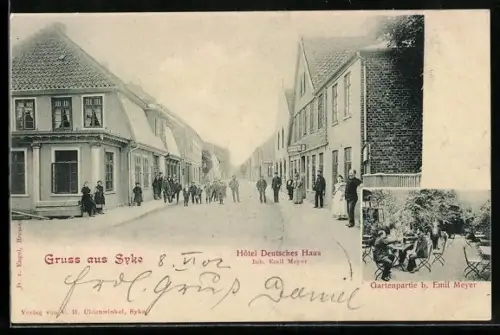 Gruss aus Syke
8 VI 02
Hôtel Deutsches Haus
Inh. Emil Meyer
frdl. Gruss Daniel
Gartenpartie b. Emil Meyer
Verlag von
Syke